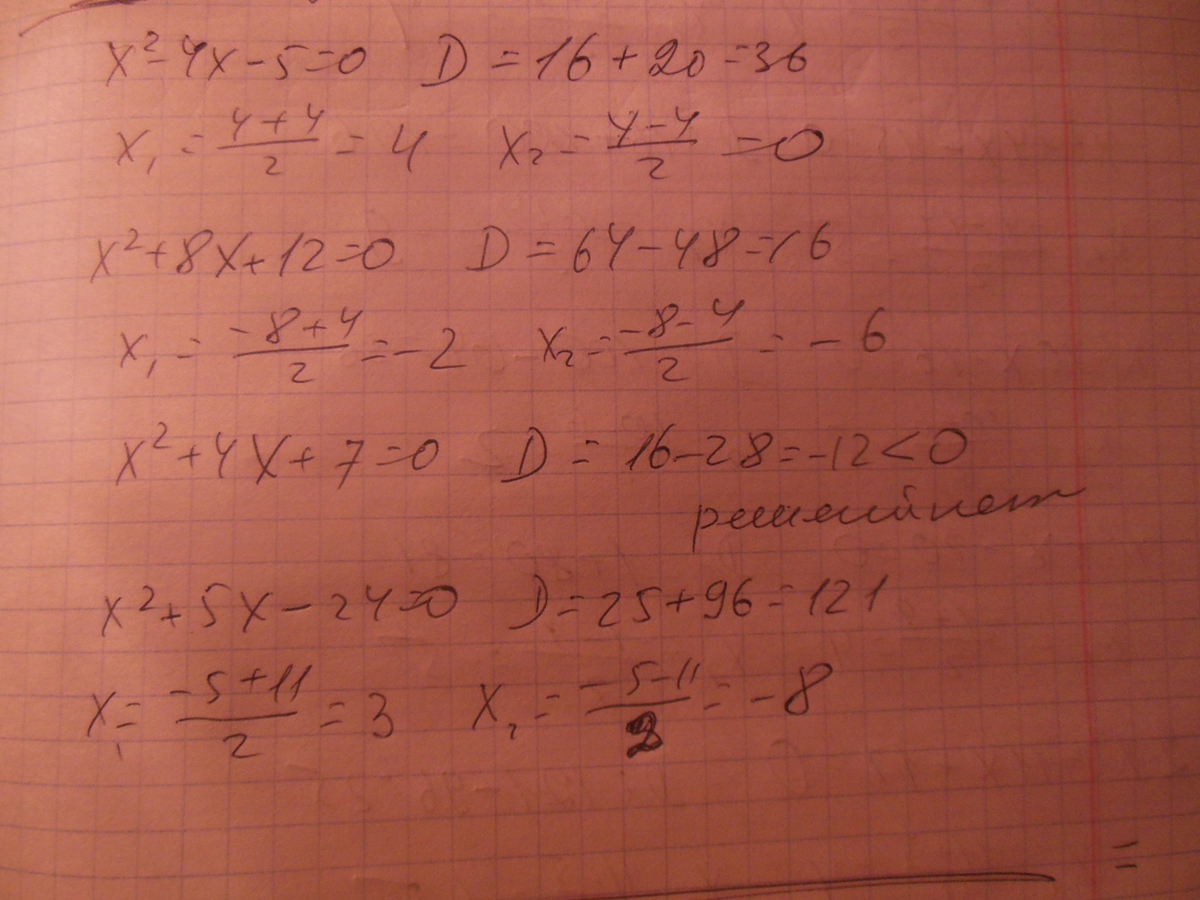 x²-4x-5=0 D=16+20=36
x₁=(4+4)/2=4 x₂=(4-4)/2=0
x²+8x+12=0 D=64-48=16
x₁=(-8+4)/2=-2 x₂=(-8-4)/2=-6
x²+4x+7=0 D=16-28=-12<0
решений нет
x²+5x-24=0 D=25+96=121
x₁=(-5+11)/2=3 x₂=(-5-11)/2=-8
=